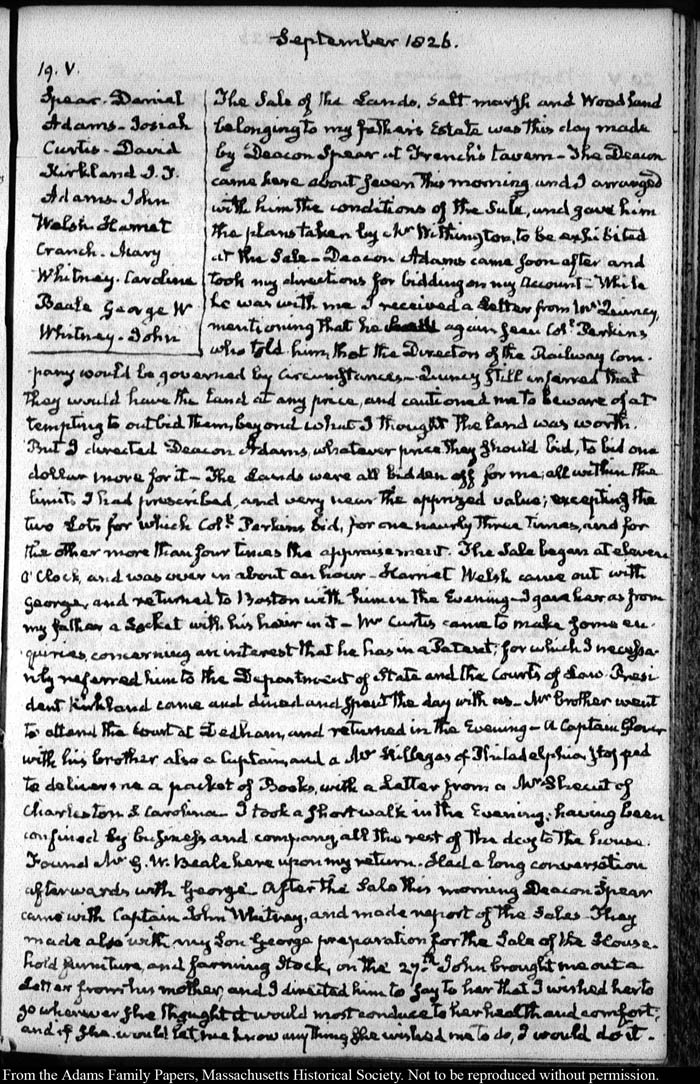 September 1826.
19. V.
Spear. Daniel
Adams- Josiah
Curtis- David
Kirkland J. T.
Adams. John
Welsh. Harriet
Cranch. Mary
Whitney. Caroline
Beale George W
Whitney- John
The Sale of the Lands, Salt marsh and Woodland
belonging to my father's Estate was this day made
by Deacon Spear at French's tavern- The Deacon
came here about seven this morning, and I arranged
with him the conditions of the Sale, and gave him
the plans taken by Mr Withington, to be exhibited
at the Sale- Deacon Adams came soon after and
took my directions for bidding on my account- While
he was with me I received a Letter from Mr Quincy,
mentioning that he had again seen Coll. Perkins
who told him, that the Directors of the Railway Com-
pany would be governed by Circumstances- Quincy still inferred that
they would have the Land at any price, and cautioned me to beware of at
tempting to outbid them, beyond what I thought the Land was worth.
But I directed Deacon Adams, whatever price they should bid, to bid one
dollar more for it- The Lands were all bidden off for me; all within the
limits I had prescribed, and very near the apprized value; excepting the
two Lots for which Coll. Perkins bid, for one nearly three times, and for
the other more than four times the appraisement. The Sale began at eleven
O'Clock, and was over in about an hour- Harriet Welsh came out with
George, and returned to Boston with him in the Evening- I gave her as from
my father a Locket with his hair in it- Mr Curtis came to make some en-
quiries, concerning an interest that he has in a Patent; for which I necessa-
rily referred him to the Department of State and the Courts of Law. Presi
dent Kirkland came and dined and spent the day with us- My brother went
to attend the Court at Dedham, and returned in the Evening- A Captain Glover
with his brother also a Captain, and a Mr Hillegas of Philadelphia, stopped
to deliver me a packet of Books, with a Letter from a Mr Shecut of
Charleston S. Carolina. I took a short walk in the Evening; having been
confined by business and company, all the rest of the day to the house.
Found Mr G. W. Beale here upon my return. Had a long conversation
afterwards with George- After the Sale this morning Deacon Spear
came with Captain John Whitney, and made report of the Sales- They
made also with my Son George preparation for the Sale of the House-
hold furniture, and farming Stock, on the 27th. John brought me out a
Letter from his mother, and I directed him to say to her that I wished her to
go wherever she thought it would most conduce to her health and comfort;
and if she would let me know any thing she wished me to do, I would do it-
From the Adams Family Papers, Massachusetts Historical Society. Not to be reproduced without permission.